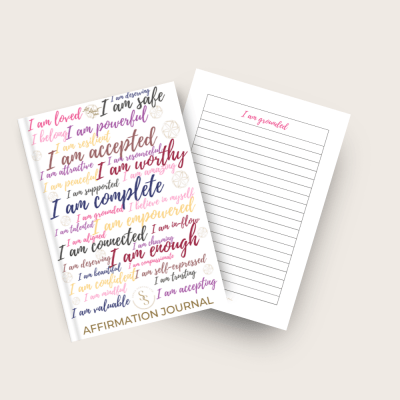 I am deserving
I am loved
I am safe
I belong
I am powerful
I am resilient
I am accepted
I am resourceful
I am attractive
I am worthy
I am peaceful
I am amazing
I am supported
I am complete
I am grounded
I believe in myself
I am talented
I am empowered
I am aligned
I am in-flow
I am connected
I am charming
I am enough
I am deserving
I am compassionate
I am beautiful
I am self-expressed
I am confident
I am trusting
I am mindful
I am accepting
I am valuable
AFFIRMATION JOURNAL
I am grounded